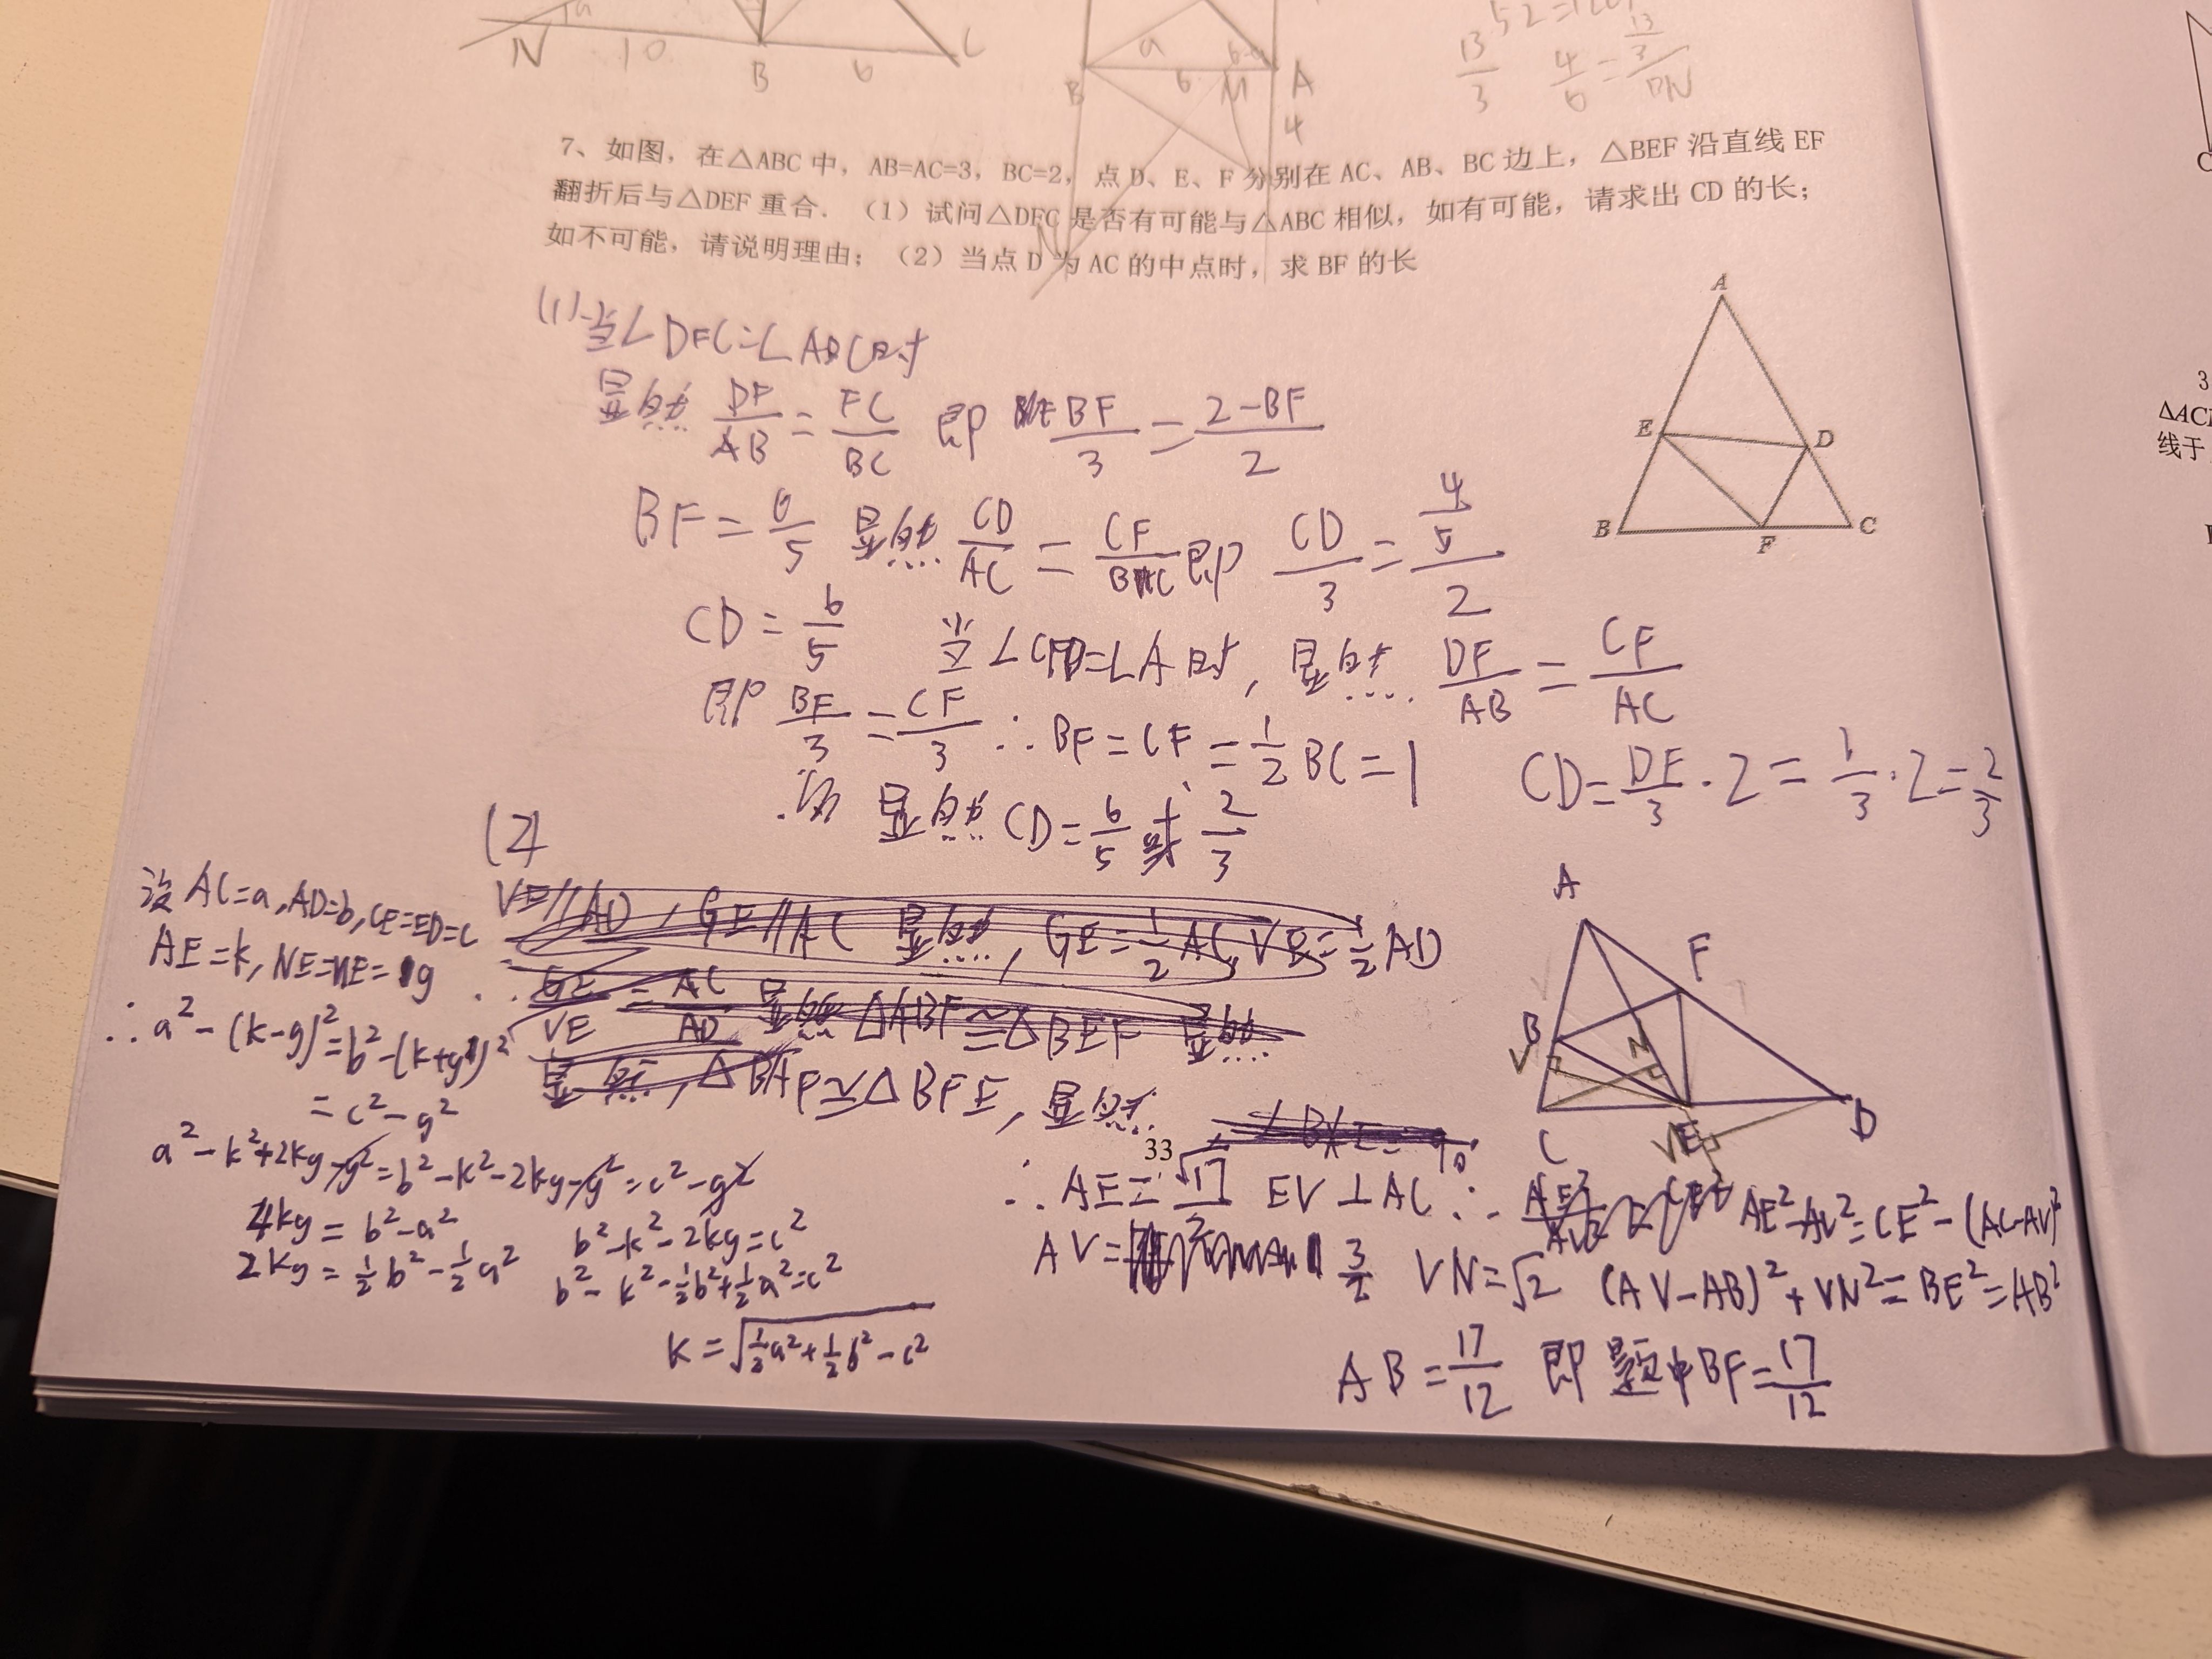 N 10 B 6 C
a
B a 6 M A
4
13/3 4/6 = 13/3 / DN
7、如图，在△ABC 中，AB=AC=3，BC=2，点 D、E、F 分别在 AC、AB、BC 边上，△BEF 沿直线 EF
翻折后与△DEF 重合．（1）试问△DFC 是否有可能与△ABC 相似，如有可能，请求出 CD 的长；
如不可能，请说明理由；（2）当点 D 为 AC 的中点时，求 BF 的长
A
E D
B F C
(1) 当∠DFC=∠ABC时
显然 DF/AB = FC/BC 即 BF/3 = 2-BF/2
BF = 6/5 显然 CD/AC = CF/BC 即 CD/3 = 4/5 / 2
CD = 6/5 当∠CFD=∠A时，显然 DF/AB = CF/AC
即 BF/3 = CF/3 ∴BF=CF=1/2 BC=1 CD=DF/3·2=1/3·2=2/3
显然 CD=6/5或2/3
(2)
设AC=a,AD=b,CE=ED=c
AE=k,NE=VE=y
∴a²-(k-y)²=b²-(k+y)²
=c²-y²
a²-k²+2ky-y²=b²-k²-2ky-y²=c²-y²
4ky=b²-a²
2ky=1/2b²-1/2a²
b²-k²-2ky=c²
b²-k²-1/2b²+1/2a²=c²
k=√1/2a²+1/2b²-c²
VE//AD，GE//AC 显然，GE=1/2AC，VE=1/2AD
GE/VE = AC/AD 显然 △ABF≌△BEF 显然
显然，△BAF≌△BFE，显然
A
F
B
V N
C VE D
33
∴AE=√17/2 EV⊥AC ∴ AE²-AV²=CE²-(AC-AV)²
AV=3/2 VN=√2 (AV-AB)²+VN²=BE²=AB²
AB=17/12 即题中BF=17/12
C
3
△AC
线于